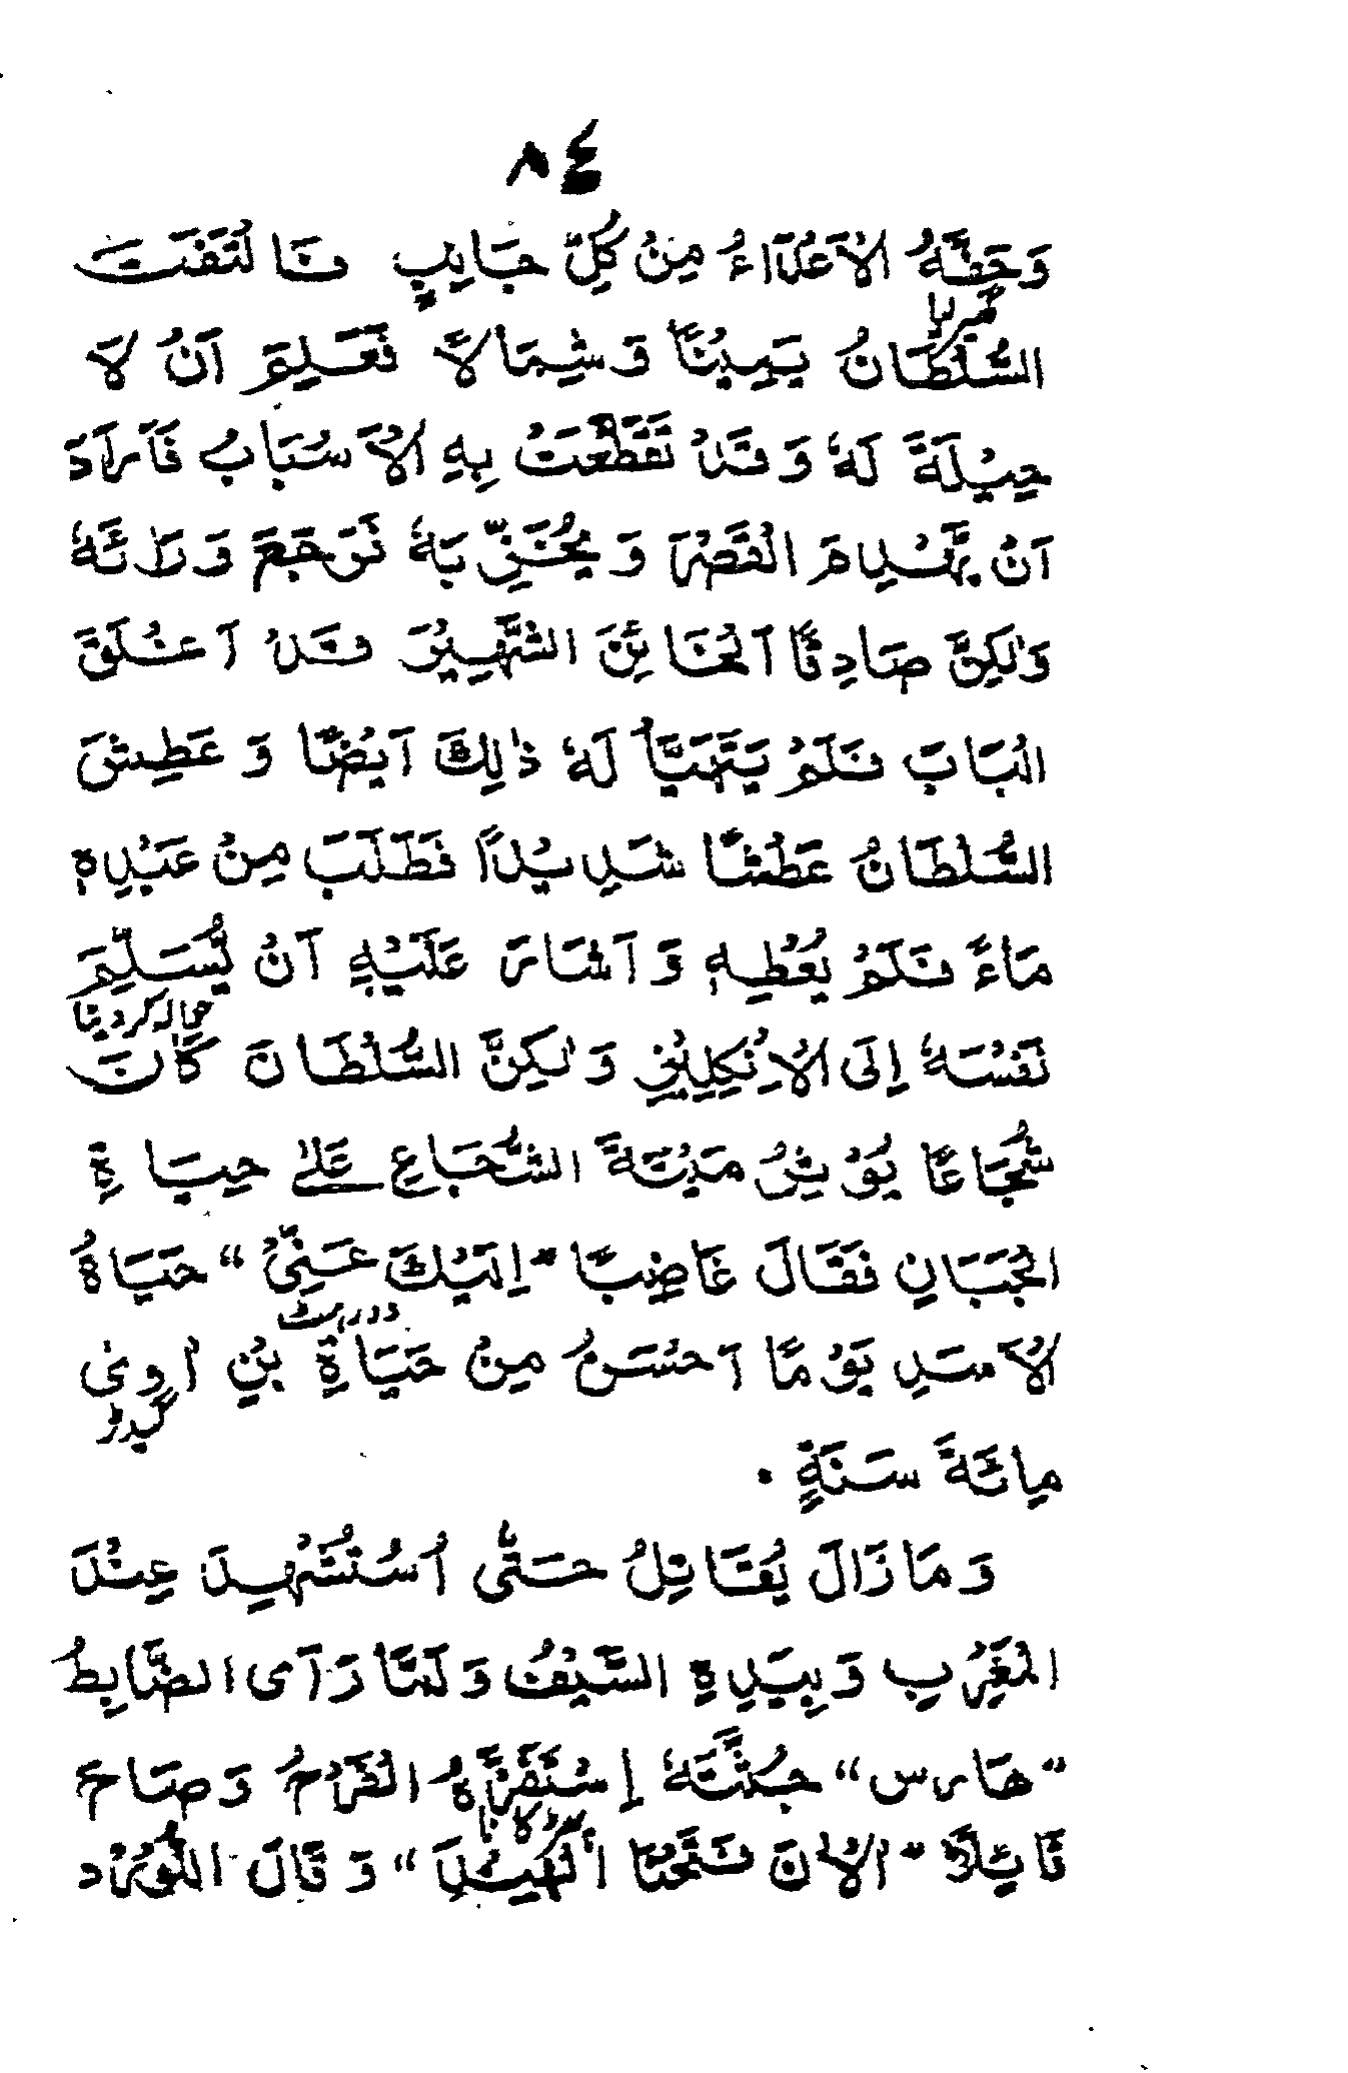 ٨٤
وَحَفَّهُ الْاَعْدَآءُ مِنْ كُلِّ جَانِبٍ فَالْتَفَتَ
گھیر لیا
السُّلْطَانُ يَمِيْنًا وَشِمَالًا فَعَلِمَ اَنْ لَا
حِيْلَةَ لَهٗ وَقَدْ تَقَطَّعَتْ بِهِ الْاَسْبَابُ فَاَرَادَ
اَنْ يَّهْدِمَ الْقَصْرَ وَيُخَرِّبَهٗ فَرَجَعَ وَرَائَهٗ
وَلٰكِنَّ صَادِقًا اَلْخَائِنَ الشَّهِيْرَ قَدْ اَغْلَقَ
الْبَابَ فَلَمْ يَتَهَيَّأْ لَهٗ ذٰلِكَ اَيْضًا وَعَطِشَ
السُّلْطَانُ عَطْشًا شَدِيْدًا فَطَلَبَ مِنْ عَبْدِهٖ
مَاءً فَلَمْ يُعْطِهٖ وَاَشَارَ عَلَيْهِ اَنْ يُّسَلِّمَ
حوالہ کر دینا
نَفْسَهٗ اِلَى الْاِنْكِلِيْزِ وَلٰكِنَّ السُّلْطَانَ كَانَ
شُجَاعًا يُؤْثِرُ مَيْتَةَ الشُّجَاعِ عَلٰى حِيَاةِ
الْجَبَانِ فَقَالَ غَاضِبًا "اِلَيْكَ عَنِّيْ" حَيَاةُ
دور ہٹ
الْاَسَدِ يَوْمًا اَحْسَنُ مِنْ حَيَاةِ بْنِ اٰوٰى
گیدڑ
مِائَةَ سَنَةٍ .
وَمَازَالَ يُقَاتِلُ حَتّٰى اُسْتُشْهِدَ عِنْدَ
الْمَغْرِبِ وَبِيَدِهِ السَّيْفُ وَلَمَّا رَآى الضَّابِطُ
"هَارس" جُثَّتَهٗ اِسْتَفَزَّهُ الْفَرْحُ وَصَاحَ
قَائِلًا "الْاٰنَ فَتَحْنَا الْهِنْدَ" وَقَالَ اللُّوْرْد